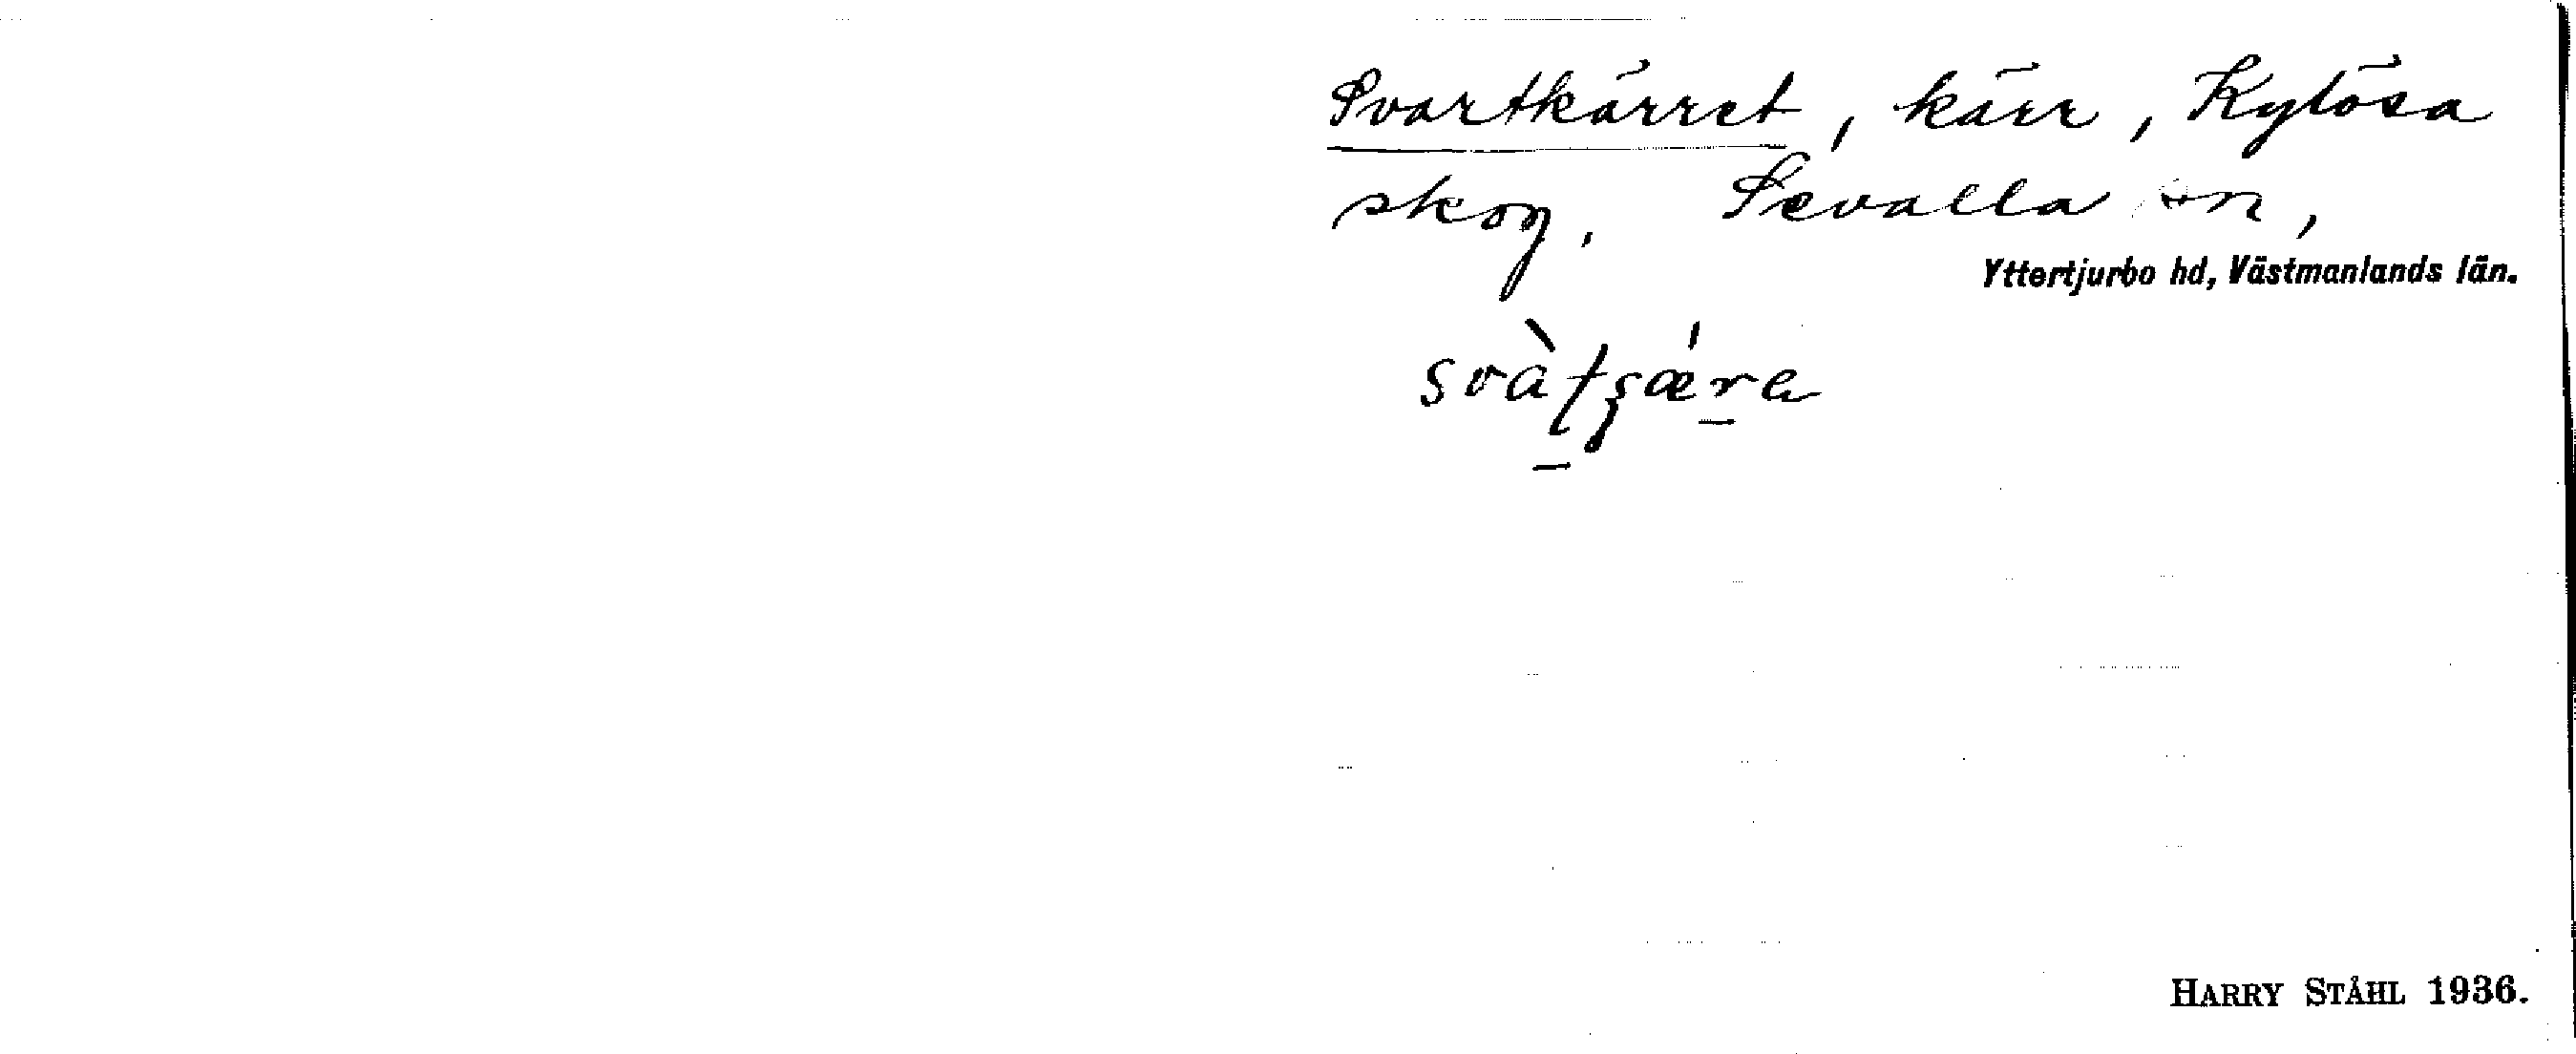 Svartkärret, kärr, Kylösa
skog. Sevalla sn,
Yttertjurbo hd, Västmanlands län.
HARRY STÅHL 1936.